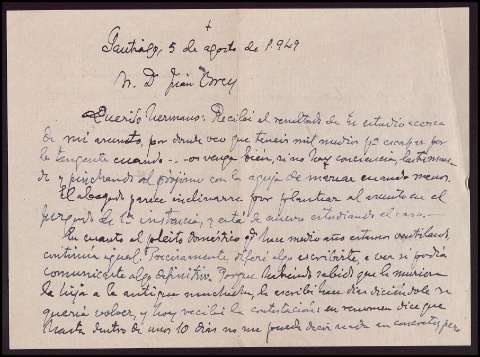 Santiago, 5 de agosto de 1.949
Sr. D. Juan
Querido hermano: Recibí el resultado de tu estudio acerca
de mi asunto, por donde veo que teneis mil medios pª escapar por
la tangente cuando - - os venga bien, si no hay conciencia,
de y pinchando al prójimo con la aguja de marear cuando menos.
El abogado parece inclinarse por plantear el asunto en el
juzgado de 1ª instancia, y está de nuevo estudiando el caso.
En cuanto al pleito doméstico qe hace medio año estamos ventilando
continúa igual. Precisamente diferí algo escribirte, a ver si podría
comunicarte algo definitivo. Porque habiendo sabido que le muriera
la hija a la antigua muchacha, la escribí hace días diciéndole si
quería volver, y hoy recibí la contestación: en resumen dice que
hasta dentro de unos 10 días no me puede decir nada en concreto, pero